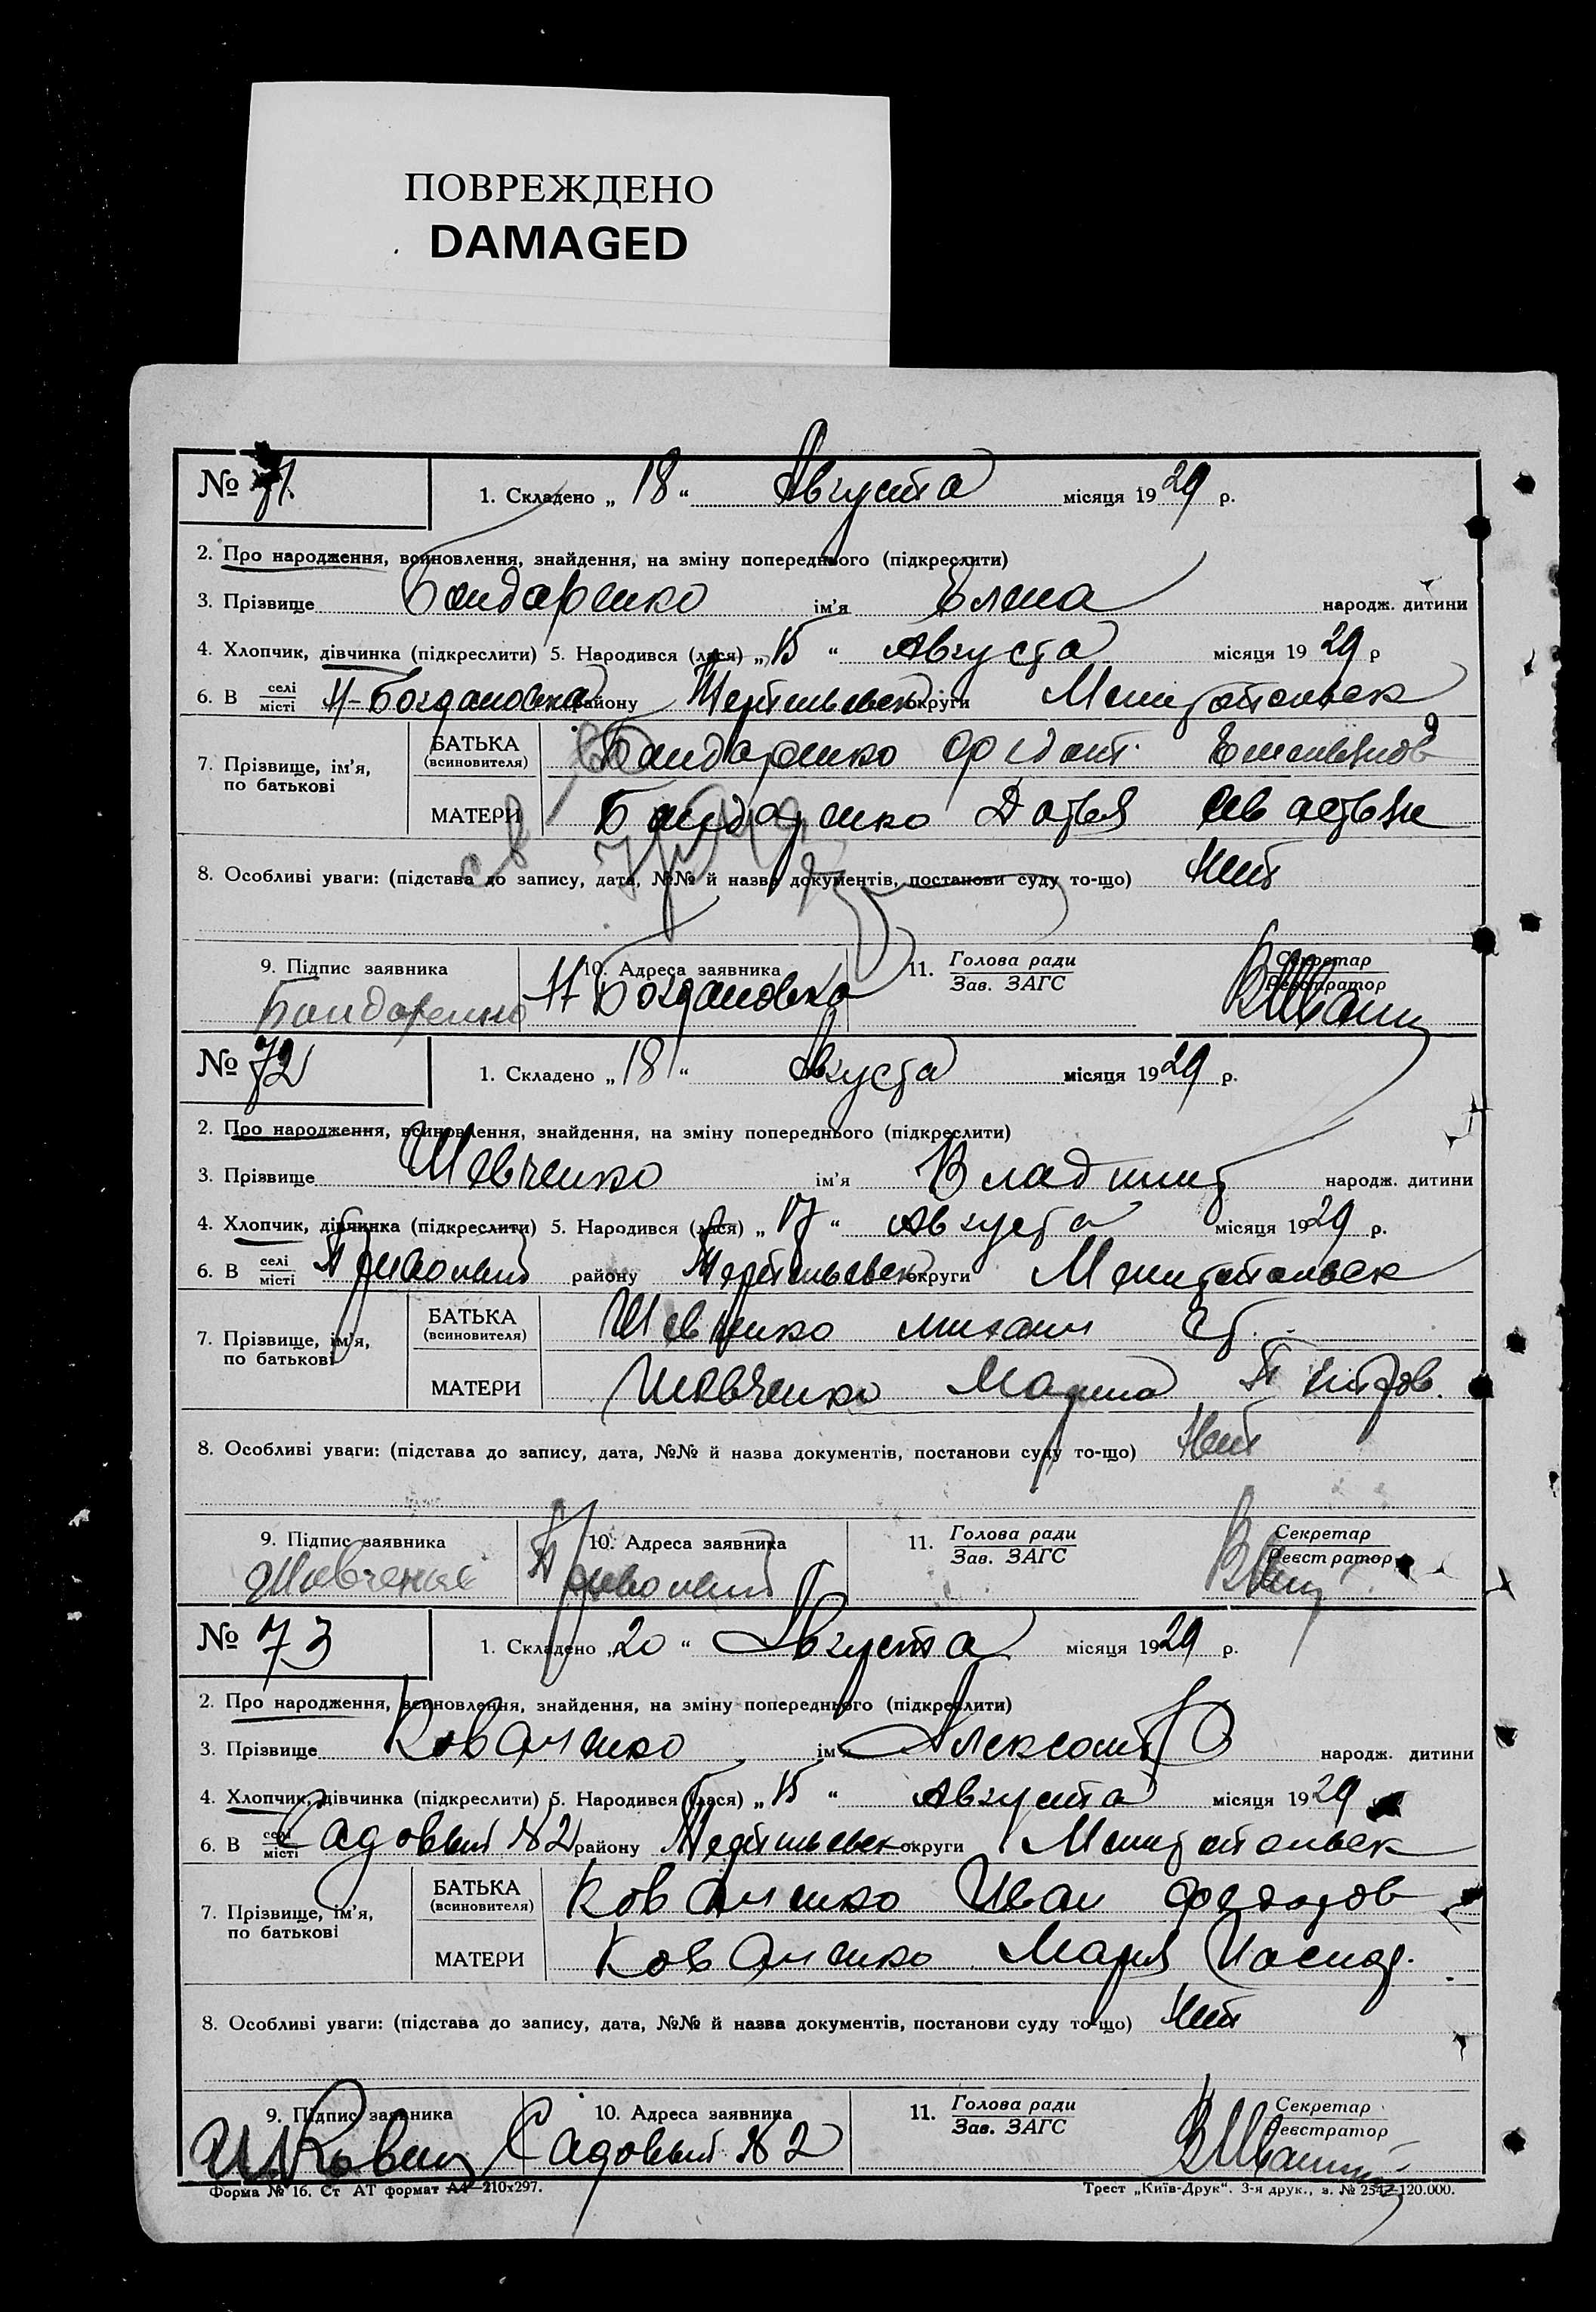 ПОВРЕЖДЕНО
DAMAGED
№ 71.
1. Складено „ 18 “ Августа місяця 1929 р.
2. Про народження, всиновлення, знайдення, на зміну попереднього (підкреслити)
3. Прізвище Бондаренко ім'я Елена народж. дитини
4. Хлопчик, дівчинка (підкреслити) 5. Народився (лася) „ 15 “ Августа місяця 1929 р
6. В селі місті Н-Богдановка району округи Мелитопольск
7. Прізвище, ім'я, по батькові
БАТЬКА (всиновителя) Бондаренко
МАТЕРИ Бондаренко Дарья
8. Особливі уваги: (підстава до запису, дата, №№ й назва документів, постанови суду то-що) Нет
9. Підпис заявника 10. Адреса заявника 11. Голова ради Зав. ЗАГС Секретар Реєстратор
Бондаренко Н Богдановка
№ 72
1. Складено „ 18 “ Августа місяця 1929 р.
2. Про народження, всиновлення, знайдення, на зміну попереднього (підкреслити)
3. Прізвище Шевченко ім'я Владимир народж. дитини
4. Хлопчик, дівчинка (підкреслити) 5. Народився (лася) „ 17 “ Августа місяця 1929 р.
6. В селі місті Привольный району округи Мелитопольск
7. Прізвище, ім'я, по батькові
БАТЬКА (всиновителя) Шевченко Михаил
МАТЕРИ Шевченко Марина
8. Особливі уваги: (підстава до запису, дата, №№ й назва документів, постанови суду то-що) Нет
9. Підпис заявника 10. Адреса заявника 11. Голова ради Зав. ЗАГС Секретар Реєстратор
Привольный
№ 73
1. Складено „ 20 “ Августа місяця 1929 р.
2. Про народження, всиновлення, знайдення, на зміну попереднього (підкреслити)
3. Прізвище Коваленко ім'я народж. дитини
4. Хлопчик, дівчинка (підкреслити) 5. Народився (лася) „ 15 “ Августа місяця 1929
6. В селі місті Садовый №2 району округи Мелитопольск
7. Прізвище, ім'я, по батькові
БАТЬКА (всиновителя) Коваленко Иван Федоров
МАТЕРИ Коваленко Мария
8. Особливі уваги: (підстава до запису, дата, №№ й назва документів, постанови суду то-що) Нет
9. Підпис заявника 10. Адреса заявника 11. Голова ради Зав. ЗАГС Секретар Реєстратор
Садовый №2
Форма № 16. Ст АТ формат А4—210x297. Трест „Київ-Друк“. 3-я друк., з. № 2547—120.000.